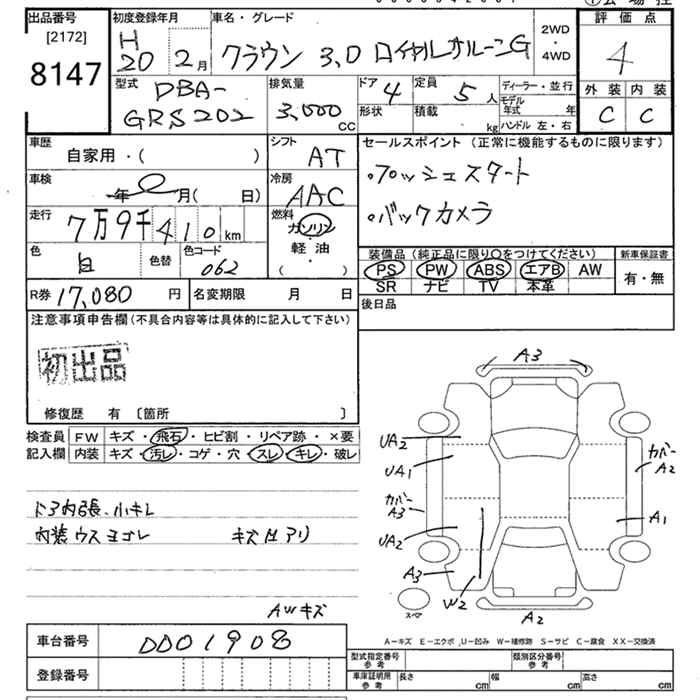 出品番号
[2172]
8147
初度登録年月
H
20 2月
車名・グレード
クラウン 3.0 ロイヤルサルーンG
2WD
・
4WD
評価点
4
外装 内装
C C
型式
DBA-
GRS202
排気量
3,000
cc
ドア 4
形状
定員 5 人
積載 kg
ディーラー・並行
モデル年式 年
ハンドル 左・右
車歴
自家用・( )
シフト
AT
車検
年 0 月( 日)
冷房
AAC
走行
7万9千410km
燃料
ガソリン
軽油
( )
色
白
色替
色コード
062
セールスポイント (正常に機能するものに限ります)
・プッシュスタート
・バックカメラ
装備品 (純正品に限り〇をつけてください)
PS PW ABS エアB AW
SR ナビ TV 本革
新車保証書
有・無
R券 17,080 円
名変期限 月 日
後日品
注意事項申告欄(不具合内容等は具体的に記入して下さい)
初出品
修復歴 有 [箇所 ]
検査員
記入欄
FW キズ・飛石・ヒビ割・リペア跡・×要
内装 キズ・汚レ・コゲ・穴・スレ・キレ・破レ
ドア内張、小キレ
内装ウスヨゴレ
AWキズ
A3
UA2
UA1
カバー
A3
UA2
A3
W2
カバー
A2
A1
A2
スペア
A-キズ E-エクボ U-凹み W-補修跡 S-サビ C-腐食 XX-交換済
車台番号 DD01908
登録番号
型式指定番号
参考
類別区分番号
参考
車庫証明用
参考
長さ cm
幅 cm
高さ cm